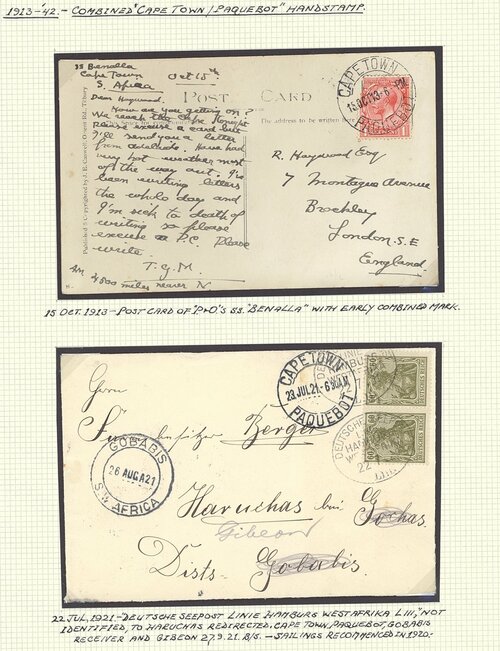 1913-'42.- COMBINED "CAPE TOWN / PAQUEBOT" HANDSTAMP.
SS Benalla
Cape Town
S. Africa
Oct 15th
POST CARD
The address to be written
Dear Haywood.
How are you getting on?
We reach the Cape tonight
Please excuse a card but
I'll send you a letter
from Adelaide. Have had
very hot weather most
of the way out. I've
been writing letters
the whole day and
I'm sick to death of
writing so please
excuse a P.C. Please
write.
T.G.M.
miles nearer N
CAPE TOWN
15 OCT 13-6 PM
PAQUEBOT
R. Haywood Esq
7 Montague Avenue
Brockley
London. S.E
England.
15 OCT. 1913 - POST CARD OF P&O'S SS. "BENALLA" WITH EARLY COMBINED MARK.
CAPE TOWN
23 JUL 21.-6 30 AM
PAQUEBOT
DEUTSCHE
22
LIII
DEUTSCHES REICH
60
60
Herrn
Berger
GOBABIS
26 AUG 21
S.W. AFRICA
Haruchas bei Gochas.
Gibeon
Dists. Gobabis
22 JUL. 1921.- DEUTSCHE SEEPOST LINIE HAMBURG WESTAFRIKA LIII, "NOT
IDENTIFIED, TO HARUCHAS REDIRECTED, CAPE TOWN, PAQUEBOT, GOBABIS
RECEIVER AND GIBEON 27.9.21. B/S. - SAILINGS RECOMMENCED IN 1920.-